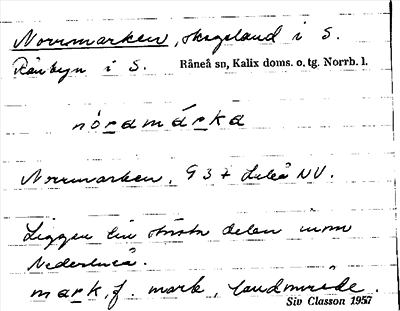 Norrmarken, skogsland i S.
Rånbyn i S. Råneå sn, Kalix doms. o. tg. Norrb. l.
nórdmárka
Norrmarken, G 37 Luleå NV.
Ligger till största delen inom
Nederluleå.
mark, f. mark, landområde.
Siv Classon 1957